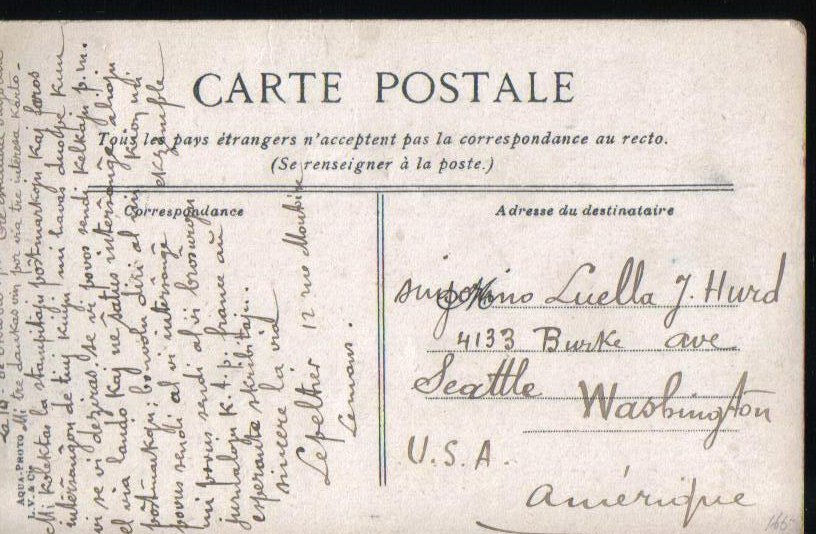 CARTE POSTALE
Tous les pays étrangers n'acceptent pas la correspondance au recto.
(Se renseigner à la poste.)
Correspondance
Adresse du destinataire
Mi tre dankas vin por via tre interesa Karto -
Mi Kolektas la stampitajn pôŝtmarkojn Kaj faros
interŝanĝon de tiuj kiujn mi havas duobje kun
vi se vi deziras. se vi povos sendi kelkajn p.m.
el via lando kaj ne ŝatus interŝanĝe aliajn
pôŝtmarkojn, bonvolu diri al mi kion mi
povus sendi al vi interŝanĝe ekzemple
mi povus sendi al vi broŝurojn
ĵurnalojn k.t.p. france aŭ
esperante skribitajn.
sincere la via
Lepeltier 12 rue
Lemans.
AQUA-PHOTO
L.V. & Cie
Luella J. Hurd
4133 Burke ave
Seattle Washington
U.S.A.
Amérique